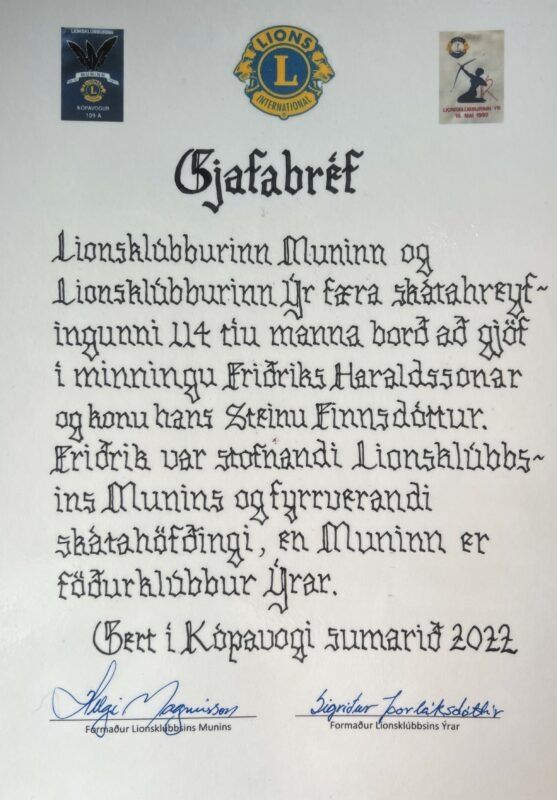 LIONSKLÚBBURINN
MUNINN
L
KÓPAVOGUR
109 A
LIONS
L
INTERNATIONAL
LIONSKLÚBBURINN ÝR
16. MAÍ 1990
Gjafabréf
Lionsklúbburinn Muninn og
Lionsklúbburinn Ýr færa skátahreyf~
ingunni 114 tíu manna borð að gjöf
í minningu Friðriks Haraldssonar
og konu hans Steinu Finnsdóttur.
Friðrik var stofnandi Lionsklúbbs~
ins Munins og fyrrverandi
skátahöfðingi, en Muninn er
föðurklúbbur Ýrar.
Gert í Kópavogi sumarið 2022
Helgi Magnússon
Sigríður Þorláksdóttir
Formaður Lionsklúbbsins Munins
Formaður Lionsklúbbsins Ýrar